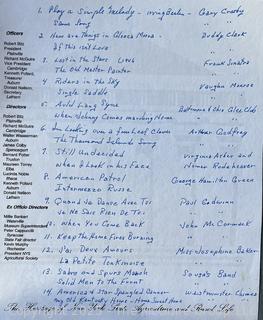 1. Play a Simple Melody - Irving Berlin - Gary Crosby
Same Song " "
Officers
2. How are things in Glocca Morra - Buddy Clark
Robert Bitz
President
Plainville
If This isn't Love " "
Richard McGuire
Vice President
Cambridge
3. Lost in the Stars Frank Sinatra
The Old Master Painter " "
Kenneth Pollard
Treasurer
Auburn
4. Riders in the Sky Vaughn Monroe
Donald Nelson
Single Saddle " "
Directors
5. Auld Lang Syne Baltimore & Ohio Glee Club
Robert Bitz
Plainville
When Johnny Comes marching Home " "
Richard McGuire
Cambridge
6. I'm Looking over a four Leaf Clover Arthur Godfrey
Walter Wasserman
Auburn
The Thousand Islands Song " "
James Colby
Spencerport
7. Still Undecided
Bernard Potter
Truxton
When I hook in his Face
Maureen Torrey
Elba
Lavinia Noble
Illness
8. American Patrol George Hamilton Green
Kenneth Pollard
Auburn
Intermezzo Russe " "
Donald Nelson
Latham
9. Quand Je Danse Avec Toi Paul Godwin
Je Ne Sais Rien De Toi " "
Ex Officio Directors
10. When You Come Back John McCormack
Millie Sankert
Waterville
Keep the Home Fires Burning " "
Museum Superintendent
Peter Cappuccilli
Syracuse
12. Pai Deve Amors Miss Josephine Baker
State Fair director
La Petite Tonkinoise " "
Kevin Murphy
Rochester
13. Sabre and Spurs March Sousa's Band
President NYS
Agricultural Society
Solid Men to the Front " "
14. America & Star Spangled Banner Westminster Chimes
My Old Kentucky Home - Home Sweet Home
The Heritage of New York State Agriculture and Rural Life